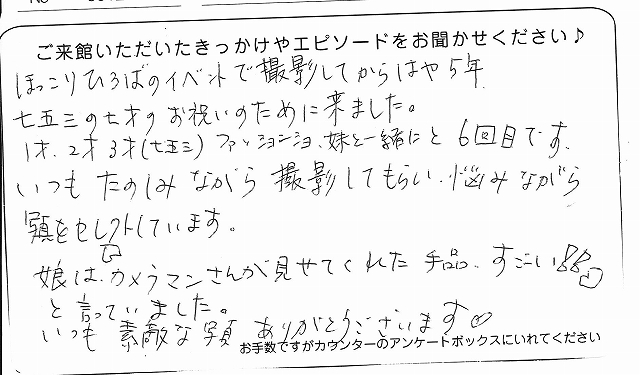 ご来館いただいたきっかけやエピソードをお聞かせください♪
ほっこりひろばのイベントで撮影してからはや5年
七五三の七才のお祝いのために来ました。
1才、2才、3才(七五三) ファッションショ、妹と一緒にと 6回目です。
いつも たのしみ ながら 撮影してもらい、悩みながら
写真をセレクトしています。
娘は、カメラマンさんが見せてくれた 手品、すごい
と言っていました。
いつも 素敵な写真 ありがとうございます
お手数ですがカウンターのアンケートボックスにいれてください